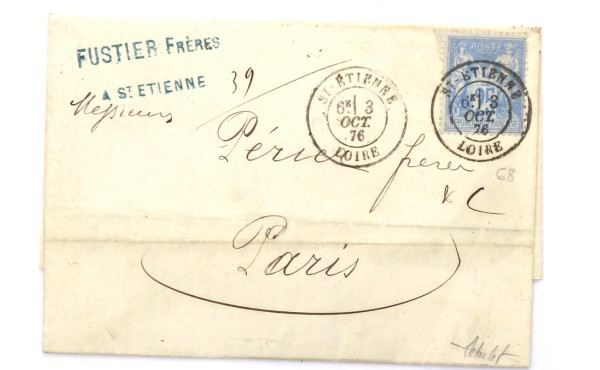 FUSTIER FRÈRES
A ST ETIENNE
39
Messieurs
ST-ÉTIENNE
6E 3
OCT.
76
LOIRE
POSTE
ST-ÉTIENNE
6E 3
OCT.
76
LOIRE
25
68
frères
& C
Paris